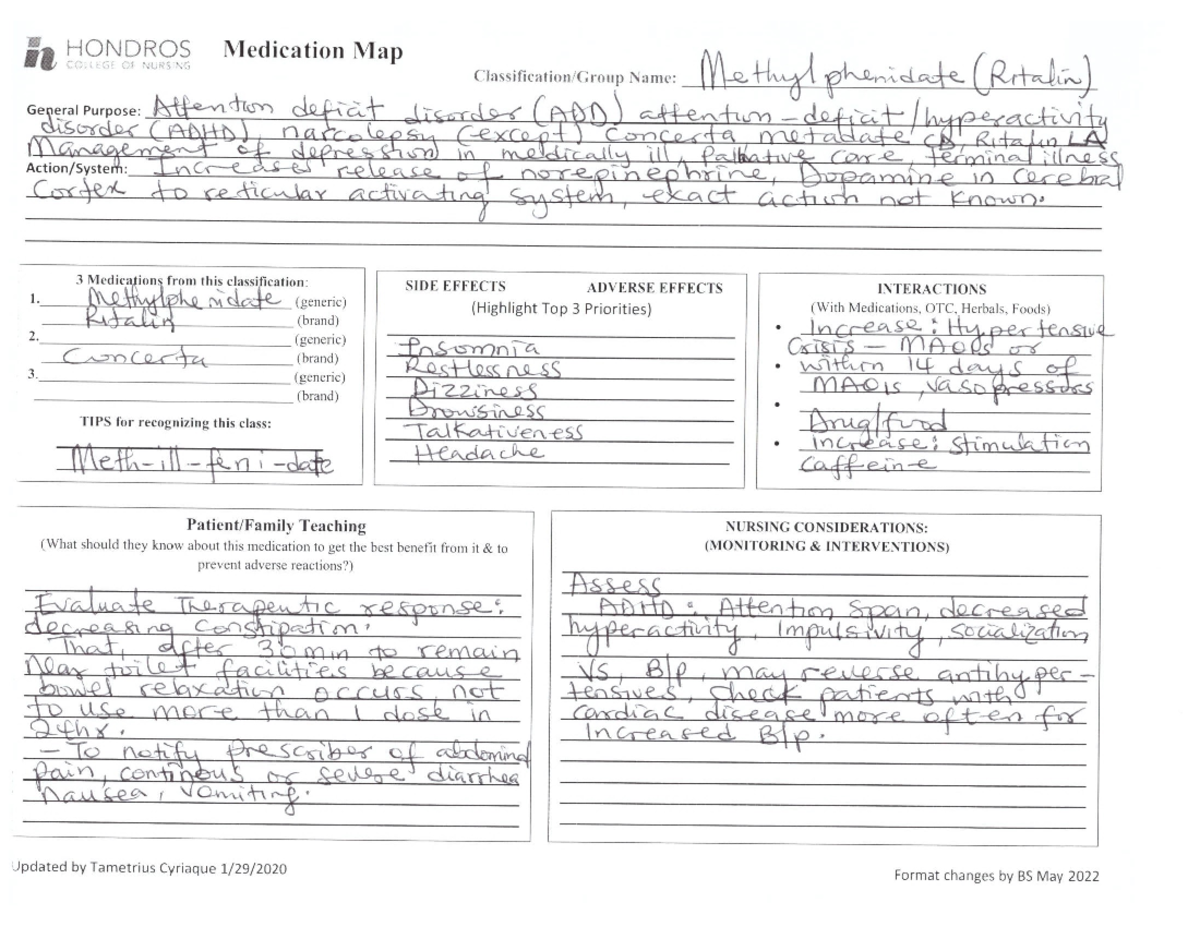 HONDROS
COLLEGE OF NURSING
Medication Map
Classification/Group Name: Methylphenidate (Ritalin)
General Purpose: Attention deficit disorder (ADD) attention-deficit/hyperactivity
disorder (ADHD), narcolepsy (except) Concerta metadate CD, Ritalin LA
Management of depression in medically ill, Palliative care, terminal illness
Action/System: Increases release of norepinephrine, Dopamine in Cerebral
Cortex to reticular activating system, exact action not known.
3 Medications from this classification:
1. Methylphenidate (generic)
Ritalin (brand)
2. (generic)
Concerta (brand)
3. (generic)
(brand)
TIPS for recognizing this class:
Meth-ill-fen i-date
SIDE EFFECTS ADVERSE EFFECTS
(Highlight Top 3 Priorities)
Insomnia
Restlessness
Dizziness
Drowsiness
Talkativeness
Headache
INTERACTIONS
(With Medications, OTC, Herbals, Foods)
• Increase: Hypertensive
Crisis – MAOIs or
• within 14 days of
MAOIs, vasopressors
•
Drug/food
• Increase: Stimulation
Caffeine
Patient/Family Teaching
(What should they know about this medication to get the best benefit from it & to
prevent adverse reactions?)
Evaluate Therapeutic response:
decreasing Constipation.
That, after 30min to remain
Near toilet facilities because
bowel relaxation occurs, not
to use more than 1 dose in
24hr.
– To notify prescriber of abdominal
Pain, continous or severe diarrhea
nausea, vomiting.
NURSING CONSIDERATIONS:
(MONITORING & INTERVENTIONS)
Assess
ADHD: Attention Span, decreased
hyperactivity, Impulsivity, socialization
VS, B/p, may reverse antihyper-
tensives, Check patients with
cardiac disease more often for
Increased B/p.
Updated by Tametrius Cyriaque 1/29/2020
Format changes by BS May 2022